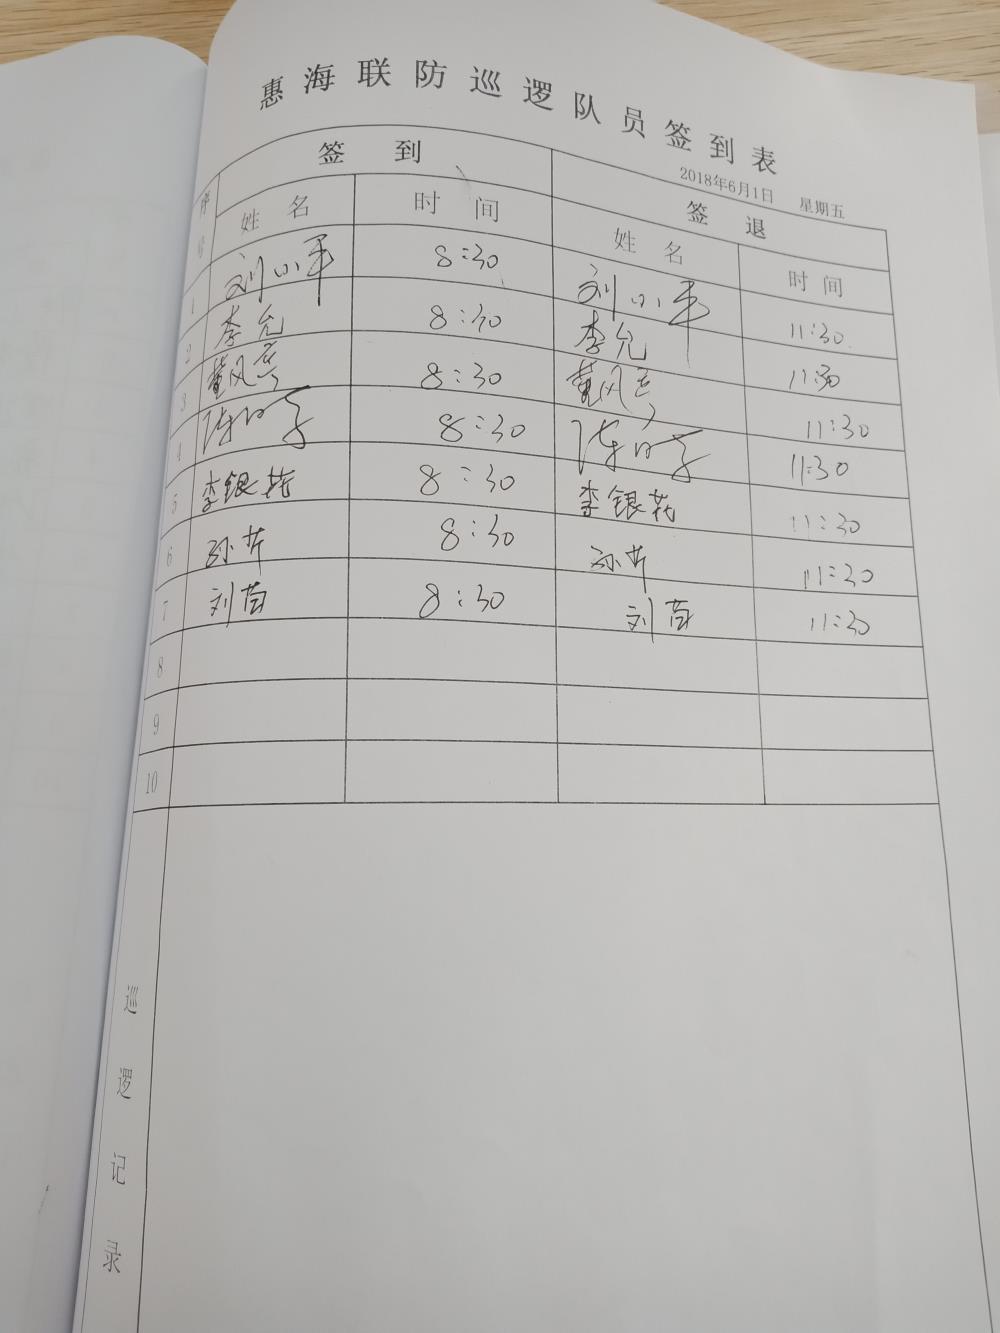 惠海联防巡逻队员签到表
2018年6月1日 星期五
序号 签到 签退
姓名 时间 姓名 时间
1 刘小平 8:30 刘小平 11:30
2 李允 8:30 李允 11:30
3 黄风 8:30 黄风 11:30
4 陈 8:30 陈 11:30
5 李银花 8:30 李银花 11:30
6 孙芹 8:30 孙芹 11:30
7 刘苗 8:30 刘苗 11:30
8
9
10
巡逻记录